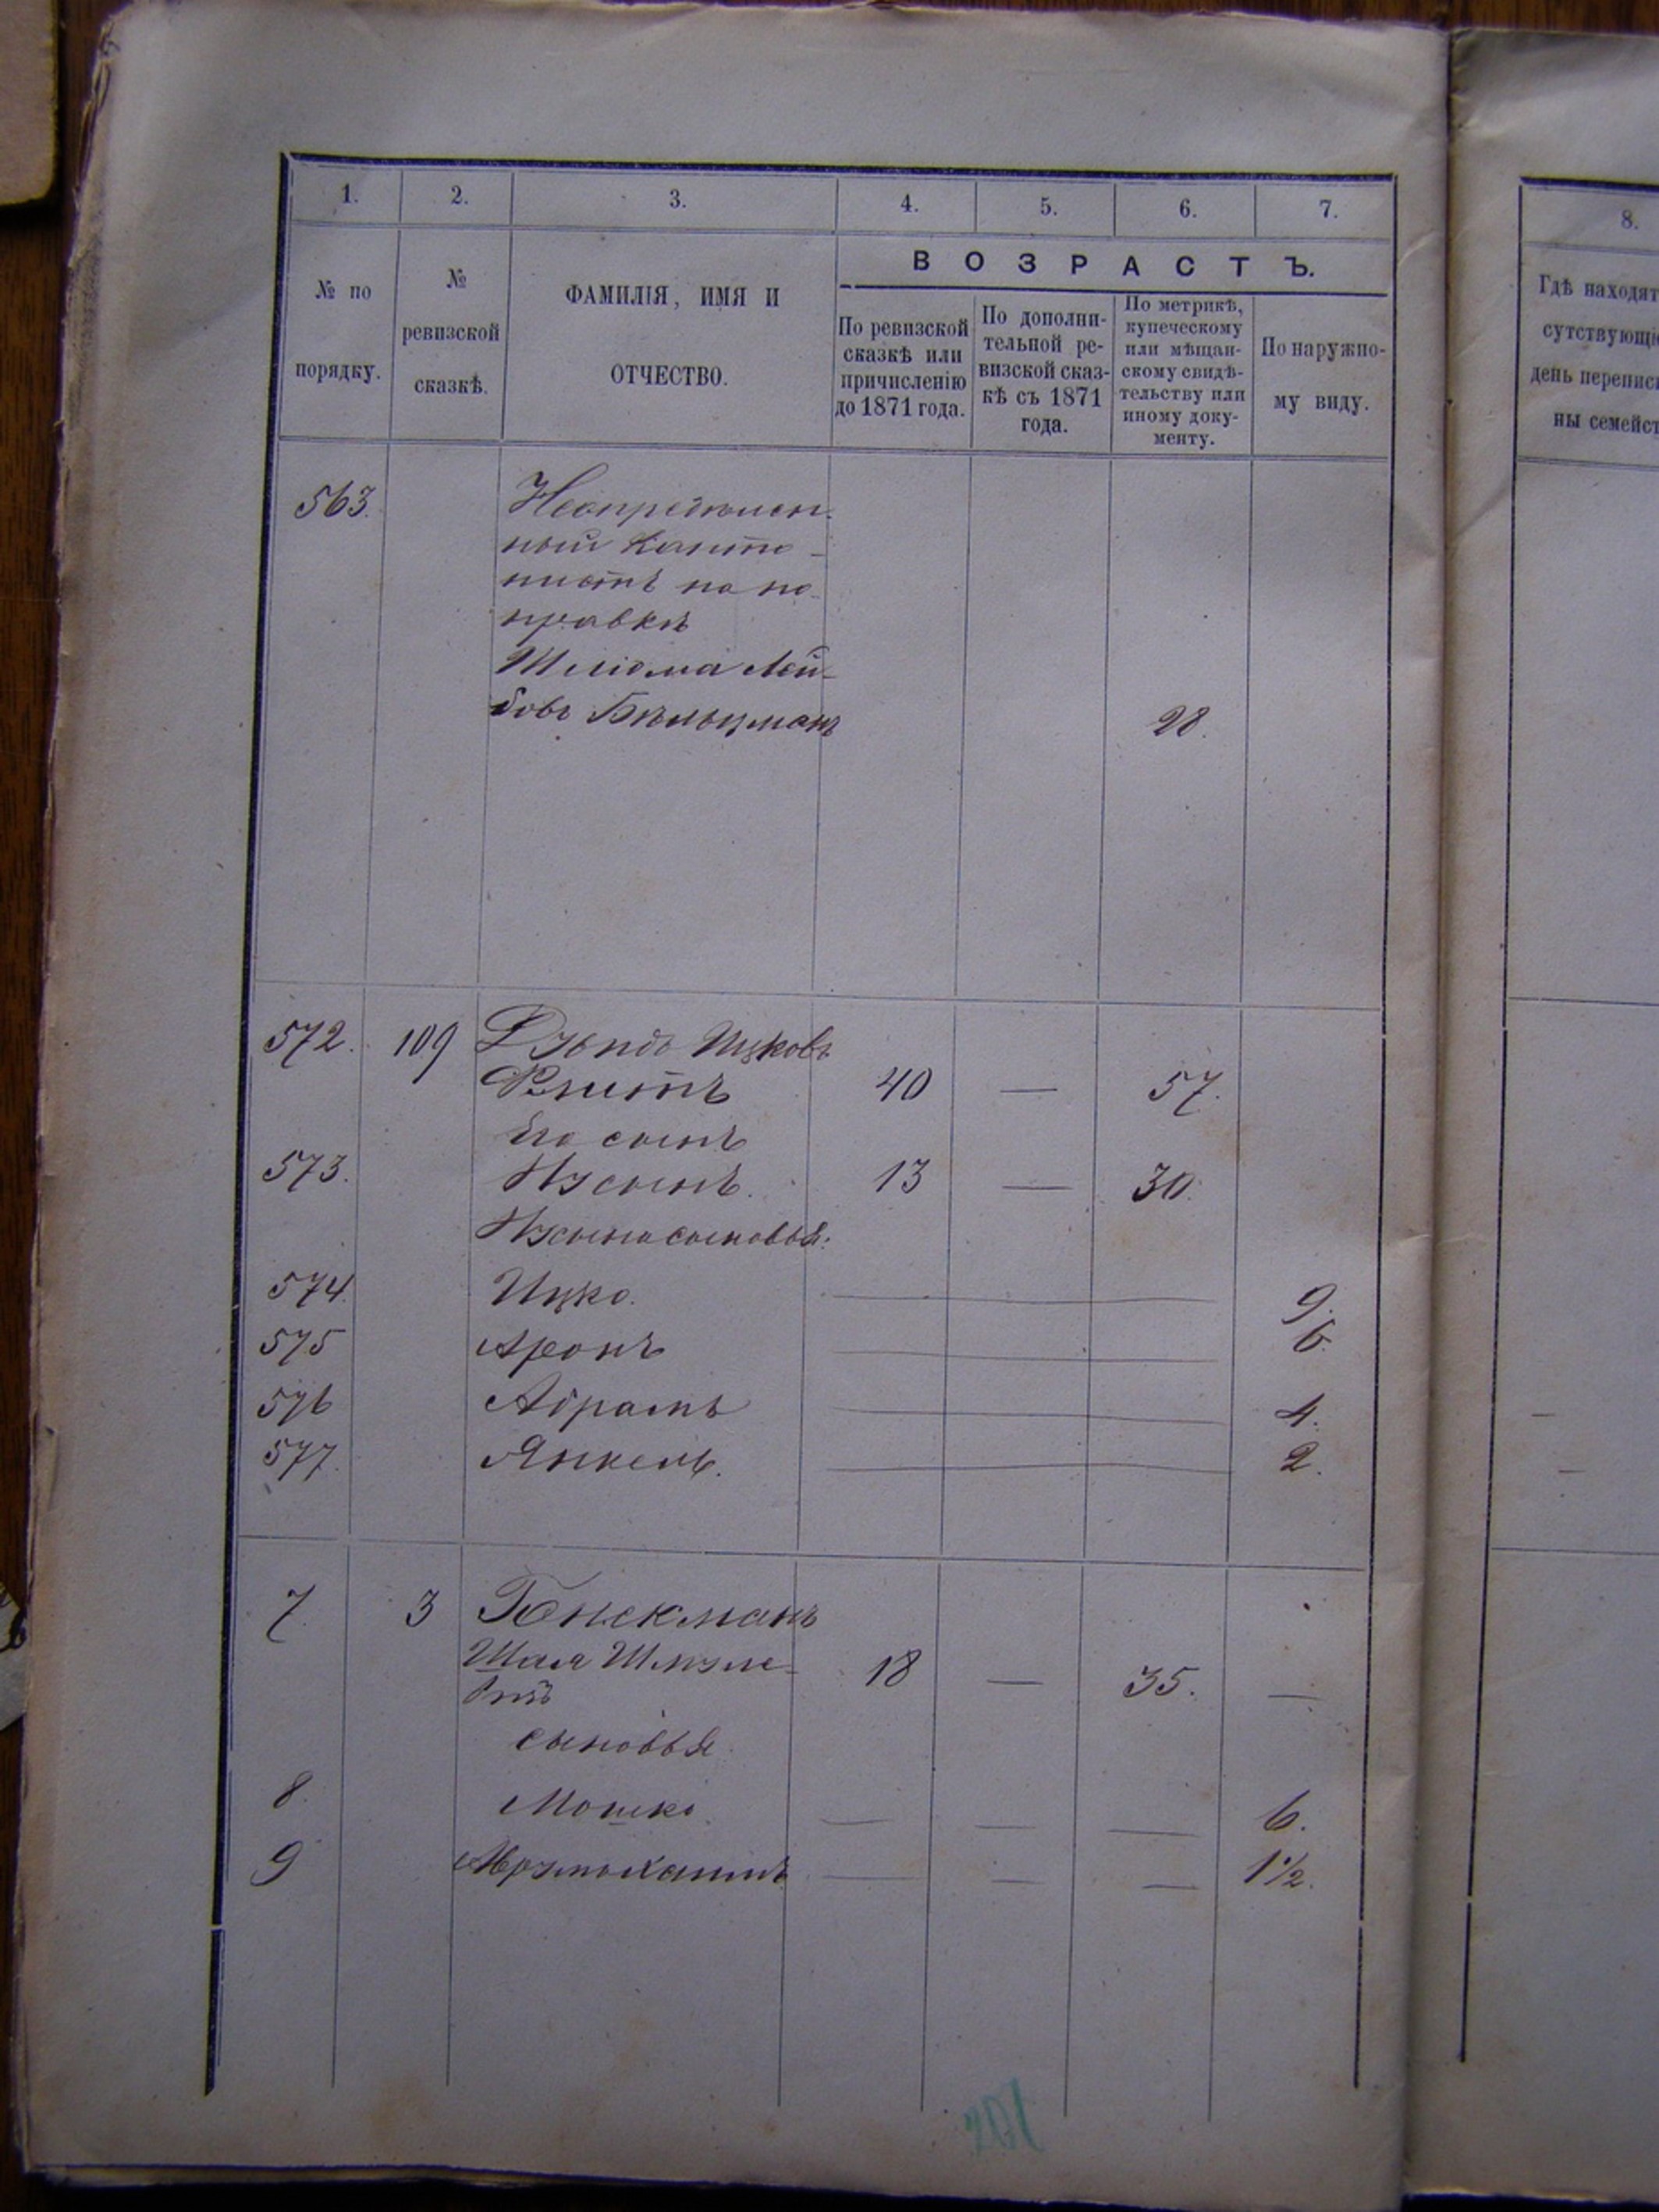 1. 2. 3. 4. 5. 6. 7.
№ по порядку.
№ ревизской сказкѣ.
ФАМИЛІЯ, ИМЯ И
ОТЧЕСТВО.
ВОЗРАСТЪ.
По ревизской
сказкѣ или
причисленію
до 1871 года.
По дополни-
тельной ре-
визской сказ-
кѣ съ 1871
года.
По метрикѣ,
купеческому
или мѣщан-
скому свидѣ-
тельству или
иному доку-
менту.
По наружно-
му виду.
563.
ный Канто-
нистъ по
Лей-
бовъ 28.
572. 109 Ицковъ
40 — 57.
Его сынъ
573. Нусынъ. 13 — 30.
Нусына сыновья:
574. Ицко. 9.
575 Аронъ 6.
576 Абрамъ 4.
577. Янкель. 2.
7. 3
Шая Шмуле- 18 — 35. —
сыновья
8. Мошко. — — — 6.
9 — — — 1½.
8.
Гдѣ находят
сутствующі
день перепис
ны семейст